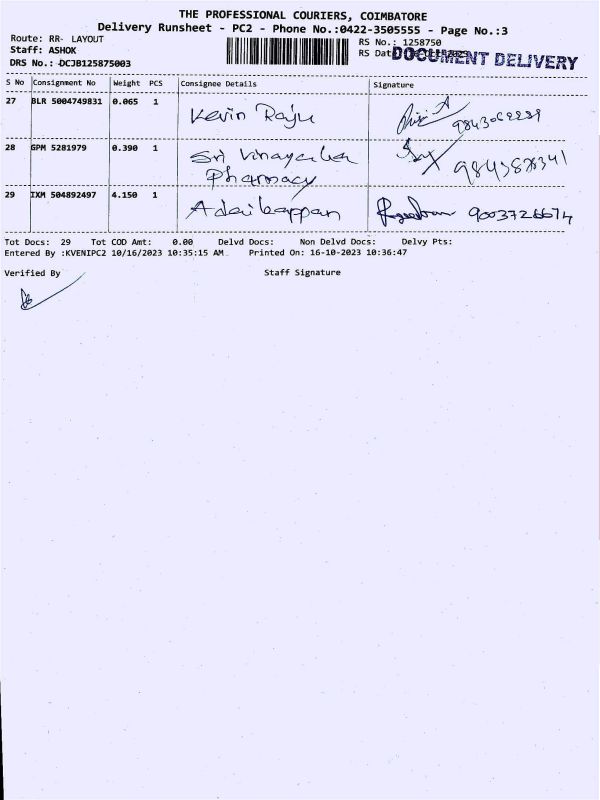 THE PROFESSIONAL COURIERS, COIMBATORE
Delivery Runsheet - PC2 - Phone No.:0422-3505555 - Page No.:3
Route: RR- LAYOUT
RS No.: 1258750
Staff: ASHOK
RS Dat
DOCUMENT DELIVERY
DRS No.: DCJB125875003
S No Consignment No Weight PCS Consignee Details Signature
27 BLR 5004749831 0.065 1 Kevin Raju
28 GPM 5281979 0.390 1 Sri Vinayaka
Pharmacy
29 IXM 504892497 4.150 1 Adaikappan 9003726674
Tot Docs: 29 Tot COD Amt: 0.00 Delvd Docs: Non Delvd Docs: Delvy Pts:
Entered By :KVENIPC2 10/16/2023 10:35:15 AM. Printed On: 16-10-2023 10:36:47
Verified By Staff Signature